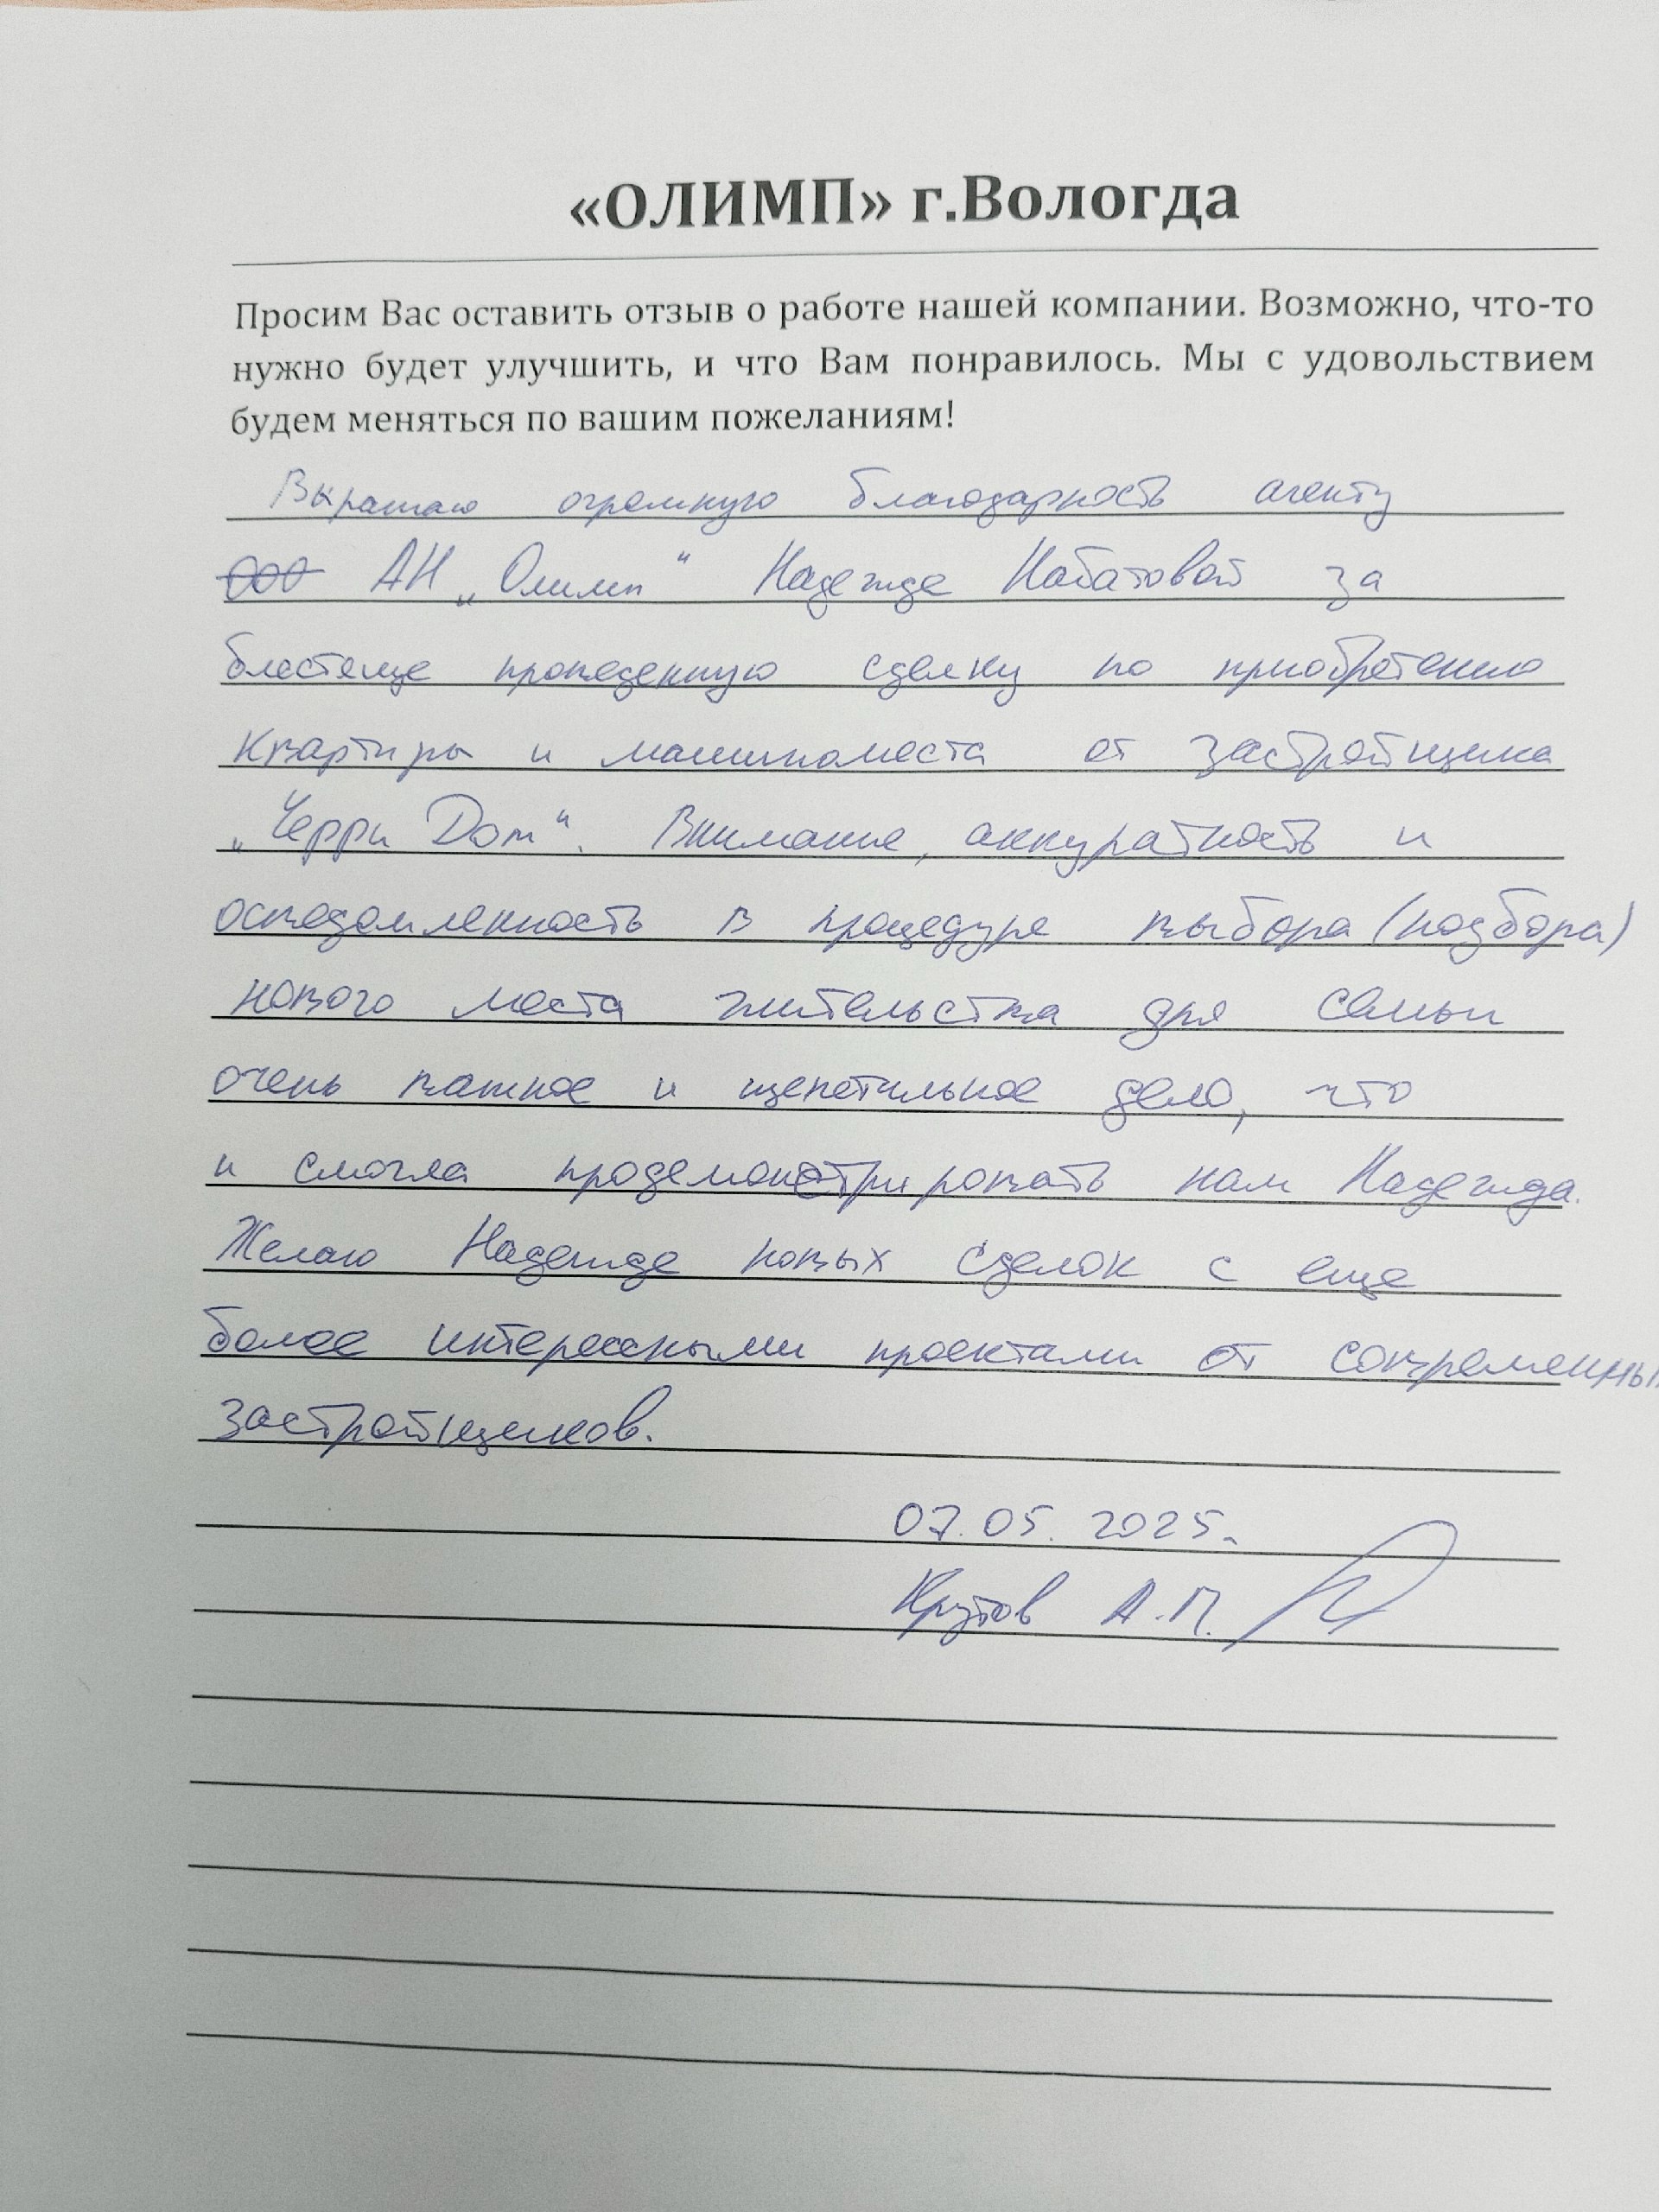 «ОЛИМП» г.Вологда
Просим Вас оставить отзыв о работе нашей компании. Возможно, что-то
нужно будет улучшить, и что Вам понравилось. Мы с удовольствием
будем меняться по вашим пожеланиям!
Выражаю огромную благодарность агенту
ООО АН „Олимп“ Надежде Набатовой за
блестяще проведенную сделку по приобретению
квартиры и машиноместа от застройщика
„Черри Дом“. Внимание, аккуратность и
осведомленность в процедуре выбора (подбора)
нового места жительства для семьи
очень важное и щепетильное дело, что
и смогла продемонстрировать нам Надежда.
Желаю Надежде новых сделок с еще
более интересными проектами от современных
застройщиков.
07.05.2025.
Крутов А.П.